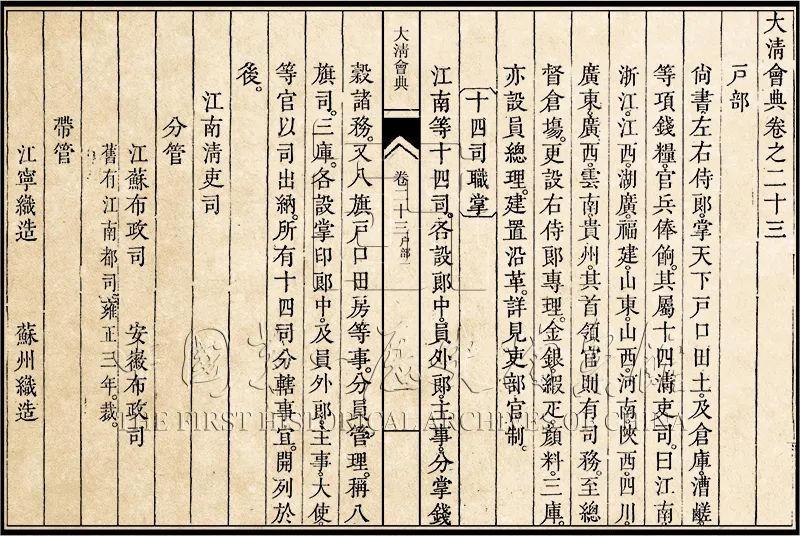 大清會典卷之二十三
戸部
尙書左右侍郞掌天下戸口田土及倉庫漕鹺
等項錢糧官兵俸餉其屬十四淸吏司曰江南
浙江江西湖廣福建山東山西河南陝西四川
廣東廣西雲南貴州其首領官則有司務至總
督倉塲更設右侍郞專理金銀緞疋顔料三庫
亦設員總理建置沿革詳見吏部官制
十四司職掌
江南等十四司各設郞中員外郞主事分掌錢
大淸會典
卷二十三戸部一
穀諸務又八旗戸口田房等事分員管理稱八
旗司三庫各設掌印郞中及員外郞主事大使
等官以司出納所有十四司分轄事宜開列於
後
江南淸吏司
分管
江蘇布政司 安徽布政司
舊有江南都司雍正三年裁
帶管
江寧織造 蘇州織造
THE FIRST HISTORICAL ARCHIVES OF CHINA